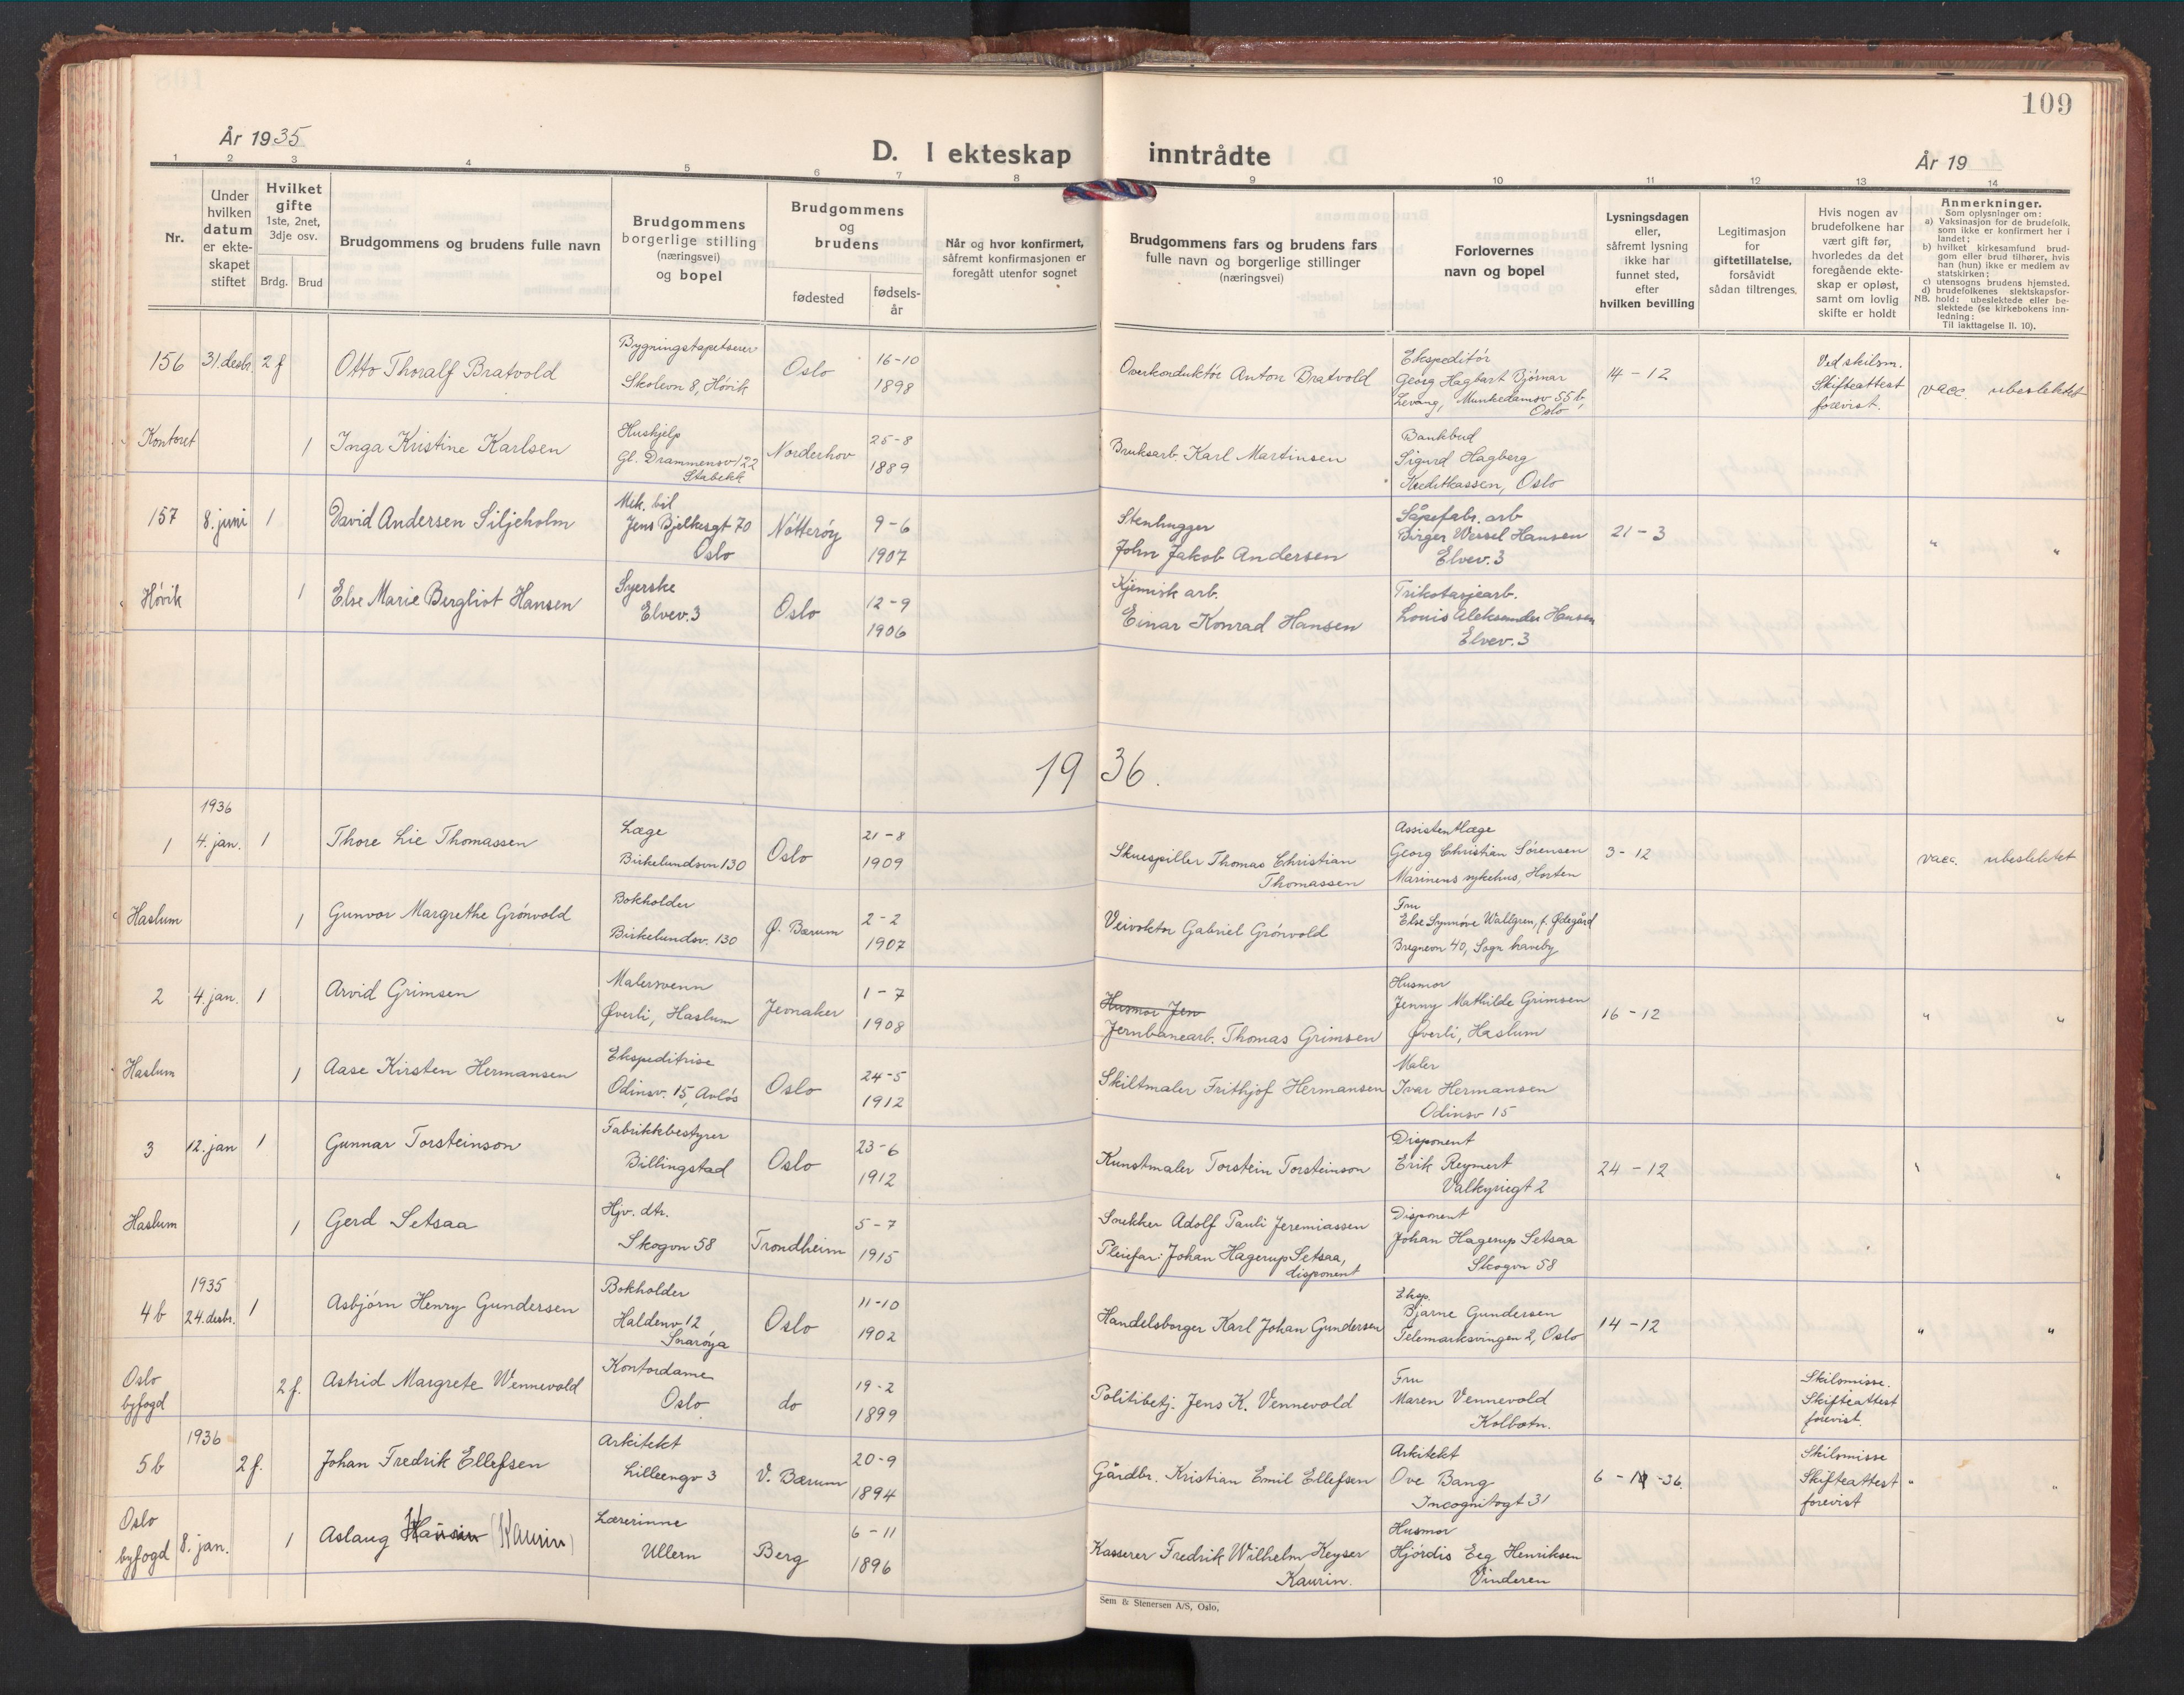 109
År 1935
D. I ekteskap inntrådte
År 19
1 2 3 4 5 6 7 8 9 10 11 12 13 14
Nr.
Under hvilken datum er ekte-skapet stiftet
Hvilket gifte 1ste, 2net, 3dje osv.
Brdg. Brud
Brudgommens og brudens fulle navn
Brudgommens borgerlige stilling (næringsvei) og bopel
Brudgommens og brudens
fødested
fødsels-år
Når og hvor konfirmert, såfremt konfirmasjonen er foregått utenfor sognet
Brudgommens fars og brudens fars fulle navn og borgerlige stillinger (næringsvei)
Forlovernes navn og bopel
Lysningsdagen eller, såfremt lysning ikke har funnet sted, efter hvilken bevilling
Legitimasjon for giftetillatelse, forsåvidt sådan tiltrenges.
Hvis nogen av brudefolkene har vært gift før, hvorledes da det foregående ekte-skap er opløst, samt om lovlig skifte er holdt
Anmerkninger.
Som oplysninger om:
a) Vaksinasjon for de brudefolk, som ikke er konfirmert her i landet;
b) hvilket kirkesamfund brud-gom eller brud tilhører, hvis han (hun) ikke er medlem av statskirken;
c) utensogns brudens hjemsted.
d) brudefolkenes slektskapsfor-hold: ubeslektede eller be-slektede (se kirkebokens inn-ledning:
NB.
Til iakttagelse II. 10).
156 31. desbr. 2 f Otto Thoralf Bratvold
Bygningstapetserer
Skolevn 8, Høvik
Oslo
16-10
1898
Overkonduktør Anton Bratvold
Ekspeditør
Georg Hagbart Bjørnar
Levang, Munkedamsv 55 b,
Oslo
14-12
Ved skilsm.
Skifteattest
forevist.
vacc. ubeslektet
Kontoret 1 Inga Kristine Karlsen
Hushjelp
Gl. Drammensv 122
Stabekk
Norderhov
25-8
1889
Bruksarb. Karl Martinsen
Bankbud
Sigurd Hagberg
Kreditkassen, Oslo
157 8. juni 1 David Andersen Siljeholm
Mek. bil
Jens Bjelkesgt 70
Oslo
Nøtterøy
9-6
1907
Stenhugger
John Jakob Andersen
Såpefabr. arb
Birger Wessel Hansen
Elvev. 3
21-3
" "
Høvik 1 Else Marie Bergliot Hansen
Syerske
Elvev. 3
Oslo
12-9
1906
Kjemisk arb.
Einar Konrad Hansen
Trikotasjearb.
Louis Aleksander Hansen
Elvev. 3
1936.
1936
1 4. jan. 1 Thore Lie Thomassen
Læge
Birkelundsvn 130
Oslo
21-8
1909
Skuespiller Thomas Christian
Thomassen
Assistentlæge
Georg Christian Sørensen
Marinens sykehus, Horten
3-12
vacc. ubeslektet
Haslum 1 Gunvor Margrethe Grønvold
Bokholder
Birkelundsv. 130
Ø. Bærum
2-2
1907
Veivokter Gabriel Grønvold
Fru
Else Synnøve Wallgren, f. Ødegård
Bregnevn 40, Sogn haveby
2 4. jan. 1 Arvid Grimsen
Malersvenn
Øverli, Haslum
Jevnaker
1-7
1908
Husmor Jen
Jernbanearb. Thomas Grimsen
Husmor
Jenny Mathilde Grimsen
Øverli, Haslum
16-12
" "
Haslum 1 Aase Kirsten Hermansen
Ekspeditrise
Odinsv. 15, Avløs
Oslo
24-5
1912
Skiltmaler Frithjof Hermansen
Maler
Ivar Hermansen
Odinsv 15
3 12. jan 1 Gunnar Torsteinson
Fabrikkbestyrer
Billingstad
Oslo
23-6
1912
Kunstmaler Torstein Torsteinson
Disponent
Erik Reymert
Valkyriegt 2
24-12
" "
Haslum 1 Gerd Setsaa
Hjv. dtr.
Skogvn 58
Trondheim
5-7
1915
Snekker Adolf Pauli Jeremiassen
Pleiefar: Johan Hagerup Setsaa,
disponent
Disponent
Johan Hagerup Setsaa
Skogvn 58
1935
4b 24. desbr. 1 Asbjørn Henry Gundersen
Bokholder
Haldenv. 12
Snarøya
Oslo
11-10
1902
Handelsborger Karl Johan Gundersen
Eksp.
Bjarne Gundersen
Telemarksvingen 2, Oslo
14-12
" "
Oslo byfogd 2 f. Astrid Margrete Wennevold
Kontordame
Oslo
do
19-2
1899
Politibetj. Jens K. Vennevold
Fru
Maren Vennevold
Kolbotn.
Skilsmisse.
Skifteattest
forevist.
1936
5b 2 f. Johan Fredrik Ellefsen
Arkitekt
Lilleengv 3
V. Bærum
20-9
1894
Gårdbr. Kristian Emil Ellefsen
Arkitekt
Ove Bang
Incognitogt 31
6-1-36.
Skilsmisse
Skifteattest
forevist
" "
Oslo byfogd 8. jan. 1 Aslaug (Kaurin)
Lærerinne
Ullern
Berg
6-11
1896
Kasserer Fredrik Wilhelm Keyser
Kaurin.
Husmor
Hjørdis Eeg Henriksen
Vinderen
Sem & Stenersen A/S, Oslo.